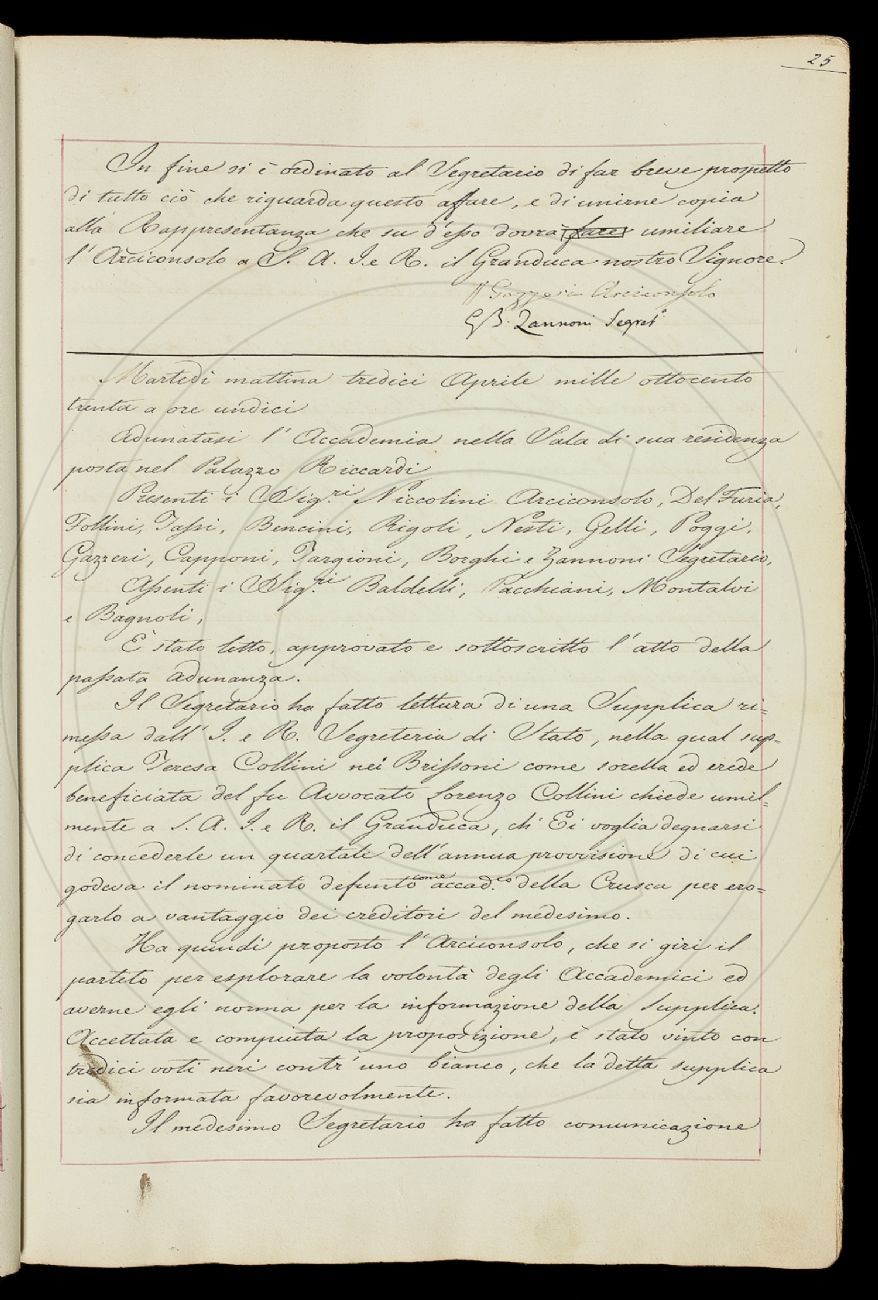 25
In fine si è ordinato al Segretario di far breve prospetto
di tutto ciò che riguarda questo affare, e di unirne copia
alla Rappresentanza che su d'esso dovrà fare umiliare
l'Arciconsolo a S. A. I. e R. il Granduca nostro Signore.
Gazzeri Arciconsolo
G B. Zannoni Segret.°
Martedì mattina tredici Aprile mille ottocento
trenta a ore undici
Adunatasi l'Accademia nella Sala di sua residenza
posta nel Palazzo Riccardi
Presenti i Sig.ri Niccolini Arciconsolo, Del Furia,
Follini, Tassi, Bencini, Rigoli, Nesti, Gelli, Poggi,
Gazzeri, Capponi, Targioni, Borghi e Zannoni Segretario,
Assenti i Sig.ri Baldelli, Pacchiani, Montalvi
e Bagnoli,
È stato letto, approvato e sottoscritto l'atto della
passata adunanza.
Il Segretario ha fatto lettura di una Supplica ri=
messa dall'I. e R. Segreteria di Stato, nella qual sup=
plica Teresa Collini nei Brissoni come sorella ed erede
beneficiata del fu Avvocato Lorenzo Collini chiede umil=
mente a S. A. I. e R. il Granduca, ch'Ei voglia degnarsi
di concederle un quartale dell'annua provvisione di cui
godeva il nominato defunto come accad.co della Crusca per ero=
garlo a vantaggio dei creditori del medesimo.
Ha quindi proposto l'Arciconsolo, che si giri il
partito per esplorare la volontà degli Accademici ed
averne egli norma per la informazione della supplica.
Accettata e compiuta la proposizione, è stato vinto con
tredici voti neri contr'uno bianco, che la detta supplica
sia informata favorevolmente.
Il medesimo Segretario ha fatto comunicazione